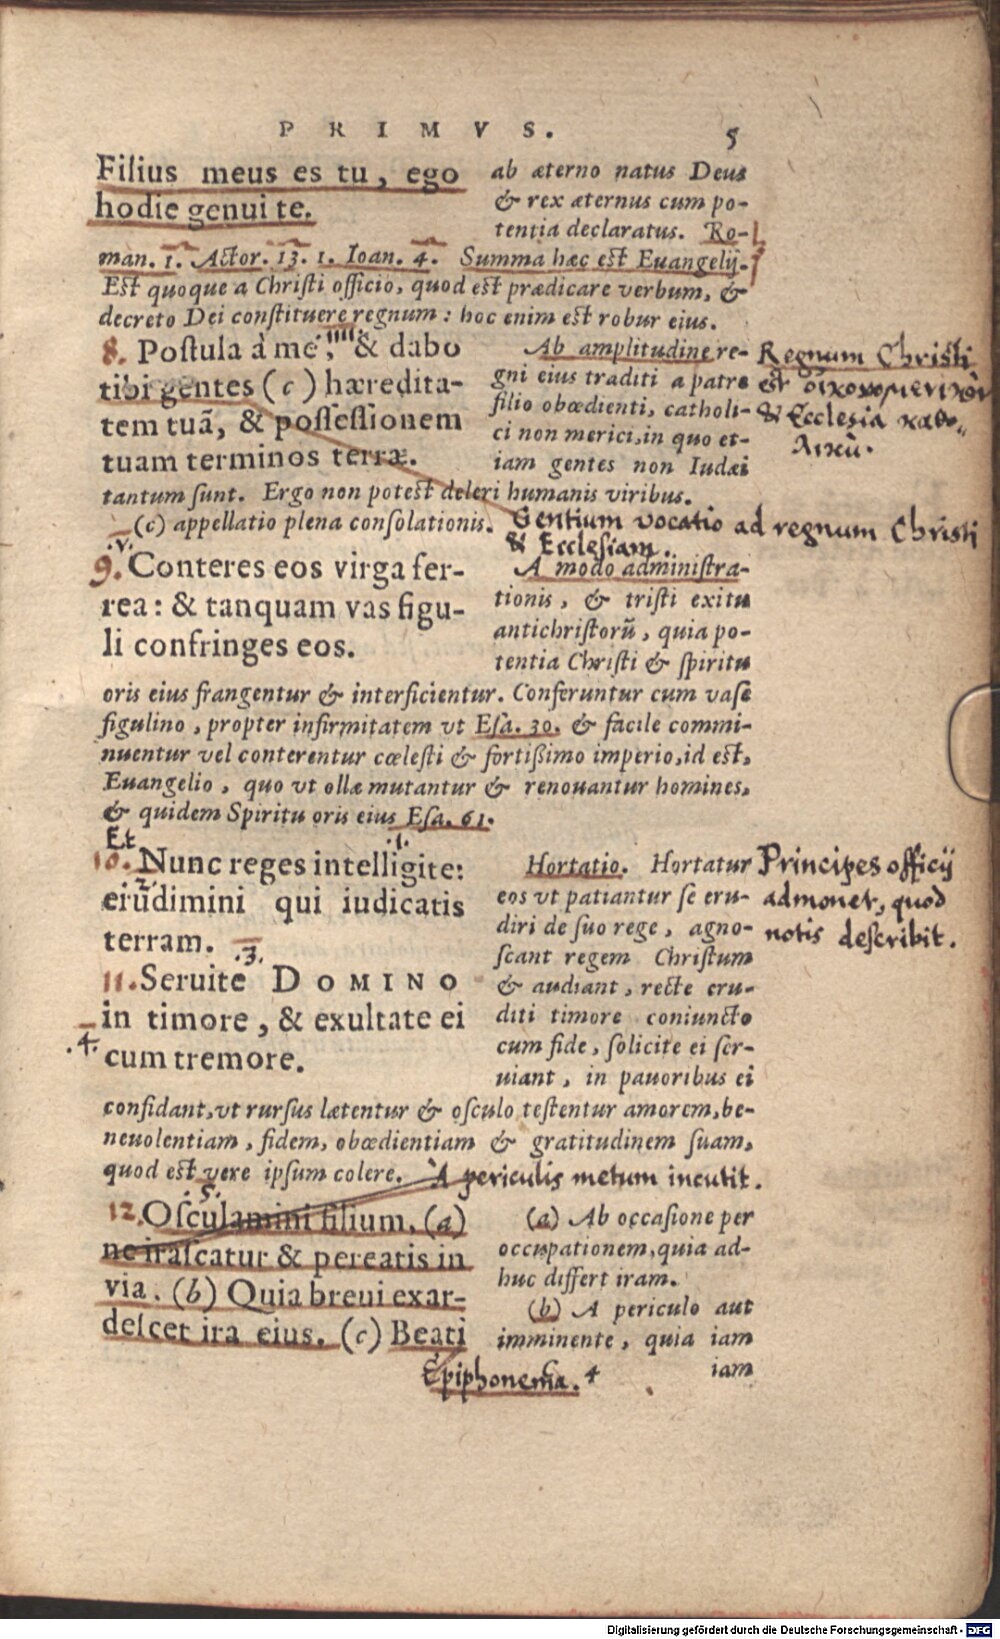 PRIMVS. 5
Filius meus es tu, ego
hodie genui te.
ab æterno natus Deus
& rex æternus cum po-
tentia declaratus. Ro-
man. 1. Actor. 13. 1. Ioan. 4. Summa hæc est Euangelij.
Est quoque a Christi officio, quod est prædicare verbum, &
decreto Dei constituere regnum: hoc enim est robur eius.
8. Postula à me, & dabo
tibi gentes (c) hæredita-
tem tuã, & possessionem
tuam terminos terræ.
Ab amplitudine re-
gni eius traditi a patre
filio obœdienti, catholi-
ci non merici, in quo et-
iam gentes non Iudæi
tantum sunt. Ergo non potest deleri humanis viribus.
(c) appellatio plena consolationis.
Regnum Christi
est οἰκουμενικὸν
& Ecclesia καθο-
λικὴ.
Gentium vocatio ad regnum Christi
& Ecclesiam.
.v.
9. Conteres eos virga fer-
rea: & tanquam vas figu-
li confringes eos.
A modo administra-
tionis, & tristi exitu
antichristorũ, quia po-
tentia Christi & spiritu
oris eius frangentur & interficientur. Conferuntur cum vase
figulino, propter infirmitatem vt Esa. 30. & facile commi-
nuentur vel conterentur cœlesti & fortißimo imperio, id est,
Euangelio, quo vt ollæ mutantur & renouantur homines,
& quidem Spiritu oris eius Esa. 61.
Et .1.
10. Nunc reges intelligite:
2.
erudimini qui iudicatis
terram.
.3.
11. Seruite DOMINO
in timore, & exultate ei
.4.
cum tremore.
Hortatio. Hortatur
eos vt patiantur se eru-
diri de suo rege, agno-
scant regem Christum
& audiant, recte eru-
diti timore coniuncto
cum fide, solicite ei ser-
uiant, in pauoribus ei
Principes officij
admonet, quod
notis describit.
confidant, vt rursus lætentur & osculo testentur amorem, be-
neuolentiam, fidem, obœdientiam & gratitudinem suam,
quod est vere ipsum colere.
A periculis metum incutit.
.5.
12. Osculamini filium, (a)
ne irascatur & pereatis in
via. (b) Quia breui exar-
descet ira eius. (c) Beati
(a) Ab occasione per
occupationem, quia ad-
huc differt iram.
(b) A periculo aut
imminente, quia iam
iam
Epiphonema. 4
Digitalisierung gefördert durch die Deutsche Forschungsgemeinschaft - DFG